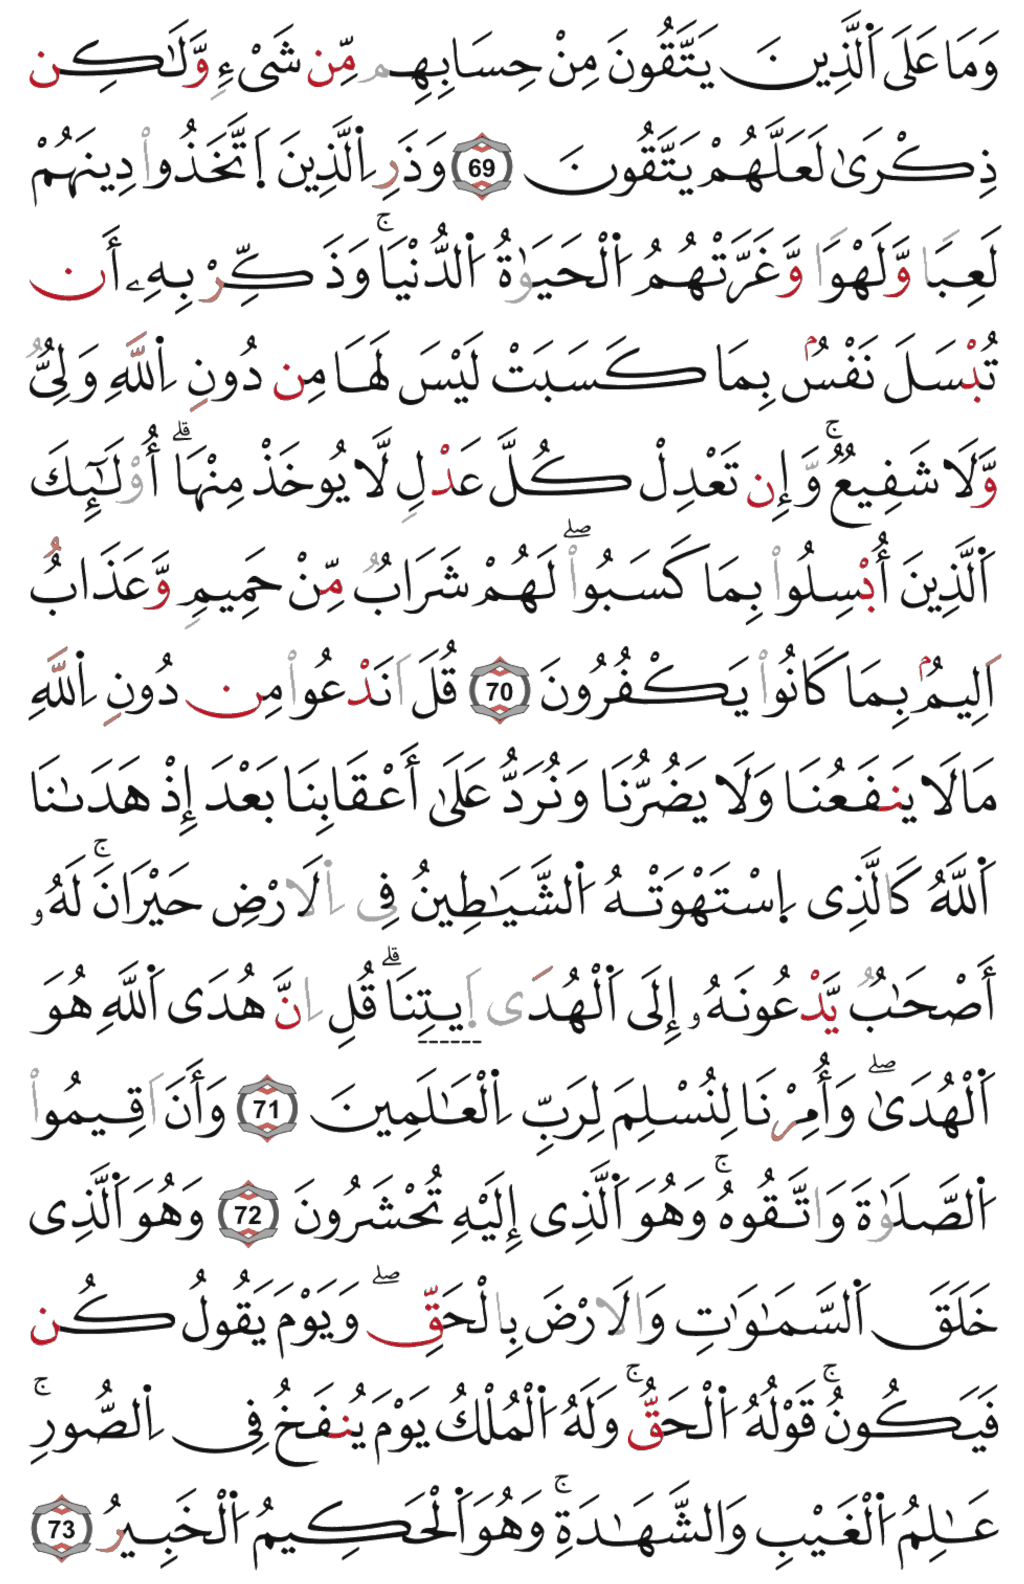 وَمَا عَلَى اَ۬لذِينَ يَتَّقُونَ مِنْ حِسَابِهِم مِّن شَےْءٖ وَلَٰكِن
ذِكْر۪ىٰ لَعَلَّهُمْ يَتَّقُونَ 69 وَذَرِ اِ۬لذِينَ اَ۪تَّخَذُواْ دِينَهُمْ
لَعِباٗ وَلَهْواٗ وَغَرَّتْهُمُ اُ۬لْحَيَوٰةُ اُ۬لدُّنْي۪اۖ وَذَكِّرْ بِهِۦٓ أَن
تُبْسَلَ نَفْسُۢ بِمَا كَسَبَتْ لَيْسَ لَهَا مِن دُونِ اِ۬للَّهِ وَلِيّٞ
وَلَا شَفِيعٞۖ وَإِن تَعْدِلْ كُلَّ عَدْلٖ لَّا يُوخَذْ مِنْهَاۖ أُوْلَٰٓئِكَ
اَ۬لذِينَ أُبْسِلُواْ بِمَا كَسَبُواْۖ لَهُمْ شَرَابٞ مِّنْ حَمِيمٖ وَعَذَابٌ
اَلِيمُۢ بِمَا كَانُواْ يَكْفُرُونَ 70 قُلَ اَنَدْعُواْ مِن دُونِ اِ۬للَّهِ
مَا لَا يَنفَعُنَا وَلَا يَضُرُّنَا وَنُرَدُّ عَلَىٰٓ أَعْقَابِنَا بَعْدَ إِذْ هَدَىٰنَا
اَ۬للَّهُ كَالذِے اِ۪سْتَهْوَتْهُ اُ۬لشَّيَٰطِينُ فِے اِ۬لَارْضِ حَيْرَانَۖ لَهُۥٓ
أَصْحَٰبٞ يَدْعُونَهُۥٓ إِلَى اَ۬لْهُدَى اَ۪يتِنَاۖ قُلِ اِنَّ هُدَى اَ۬للَّهِ هُوَ
اَ۬لْهُد۪ىٰۖ وَأُمِرْنَا لِنُسْلِمَ لِرَبِّ اِ۬لْعَٰلَمِينَ 71 وَأَنَ اَقِيمُواْ
اُ۬لصَّلَوٰةَ وَاتَّقُوهُۖ وَهُوَ اَ۬لذِےٓ إِلَيْهِ تُحْشَرُونَ 72 وَهُوَ اَ۬لذِے
خَلَقَ اَ۬لسَّمَٰوَٰتِ وَالَارْضَ بِالْحَقِّۖ وَيَوْمَ يَقُولُ كُن
فَيَكُونُۖ قَوْلُهُ اُ۬لْحَقُّۖ وَلَهُ اُ۬لْمُلْكُ يَوْمَ يُنفَخُ فِے اِ۬لصُّورِۖ
عَٰلِمُ اُ۬لْغَيْبِ وَالشَّهَٰدَةِۖ وَهُوَ اَ۬لْحَكِيمُ اُ۬لْخَبِيرُ 73